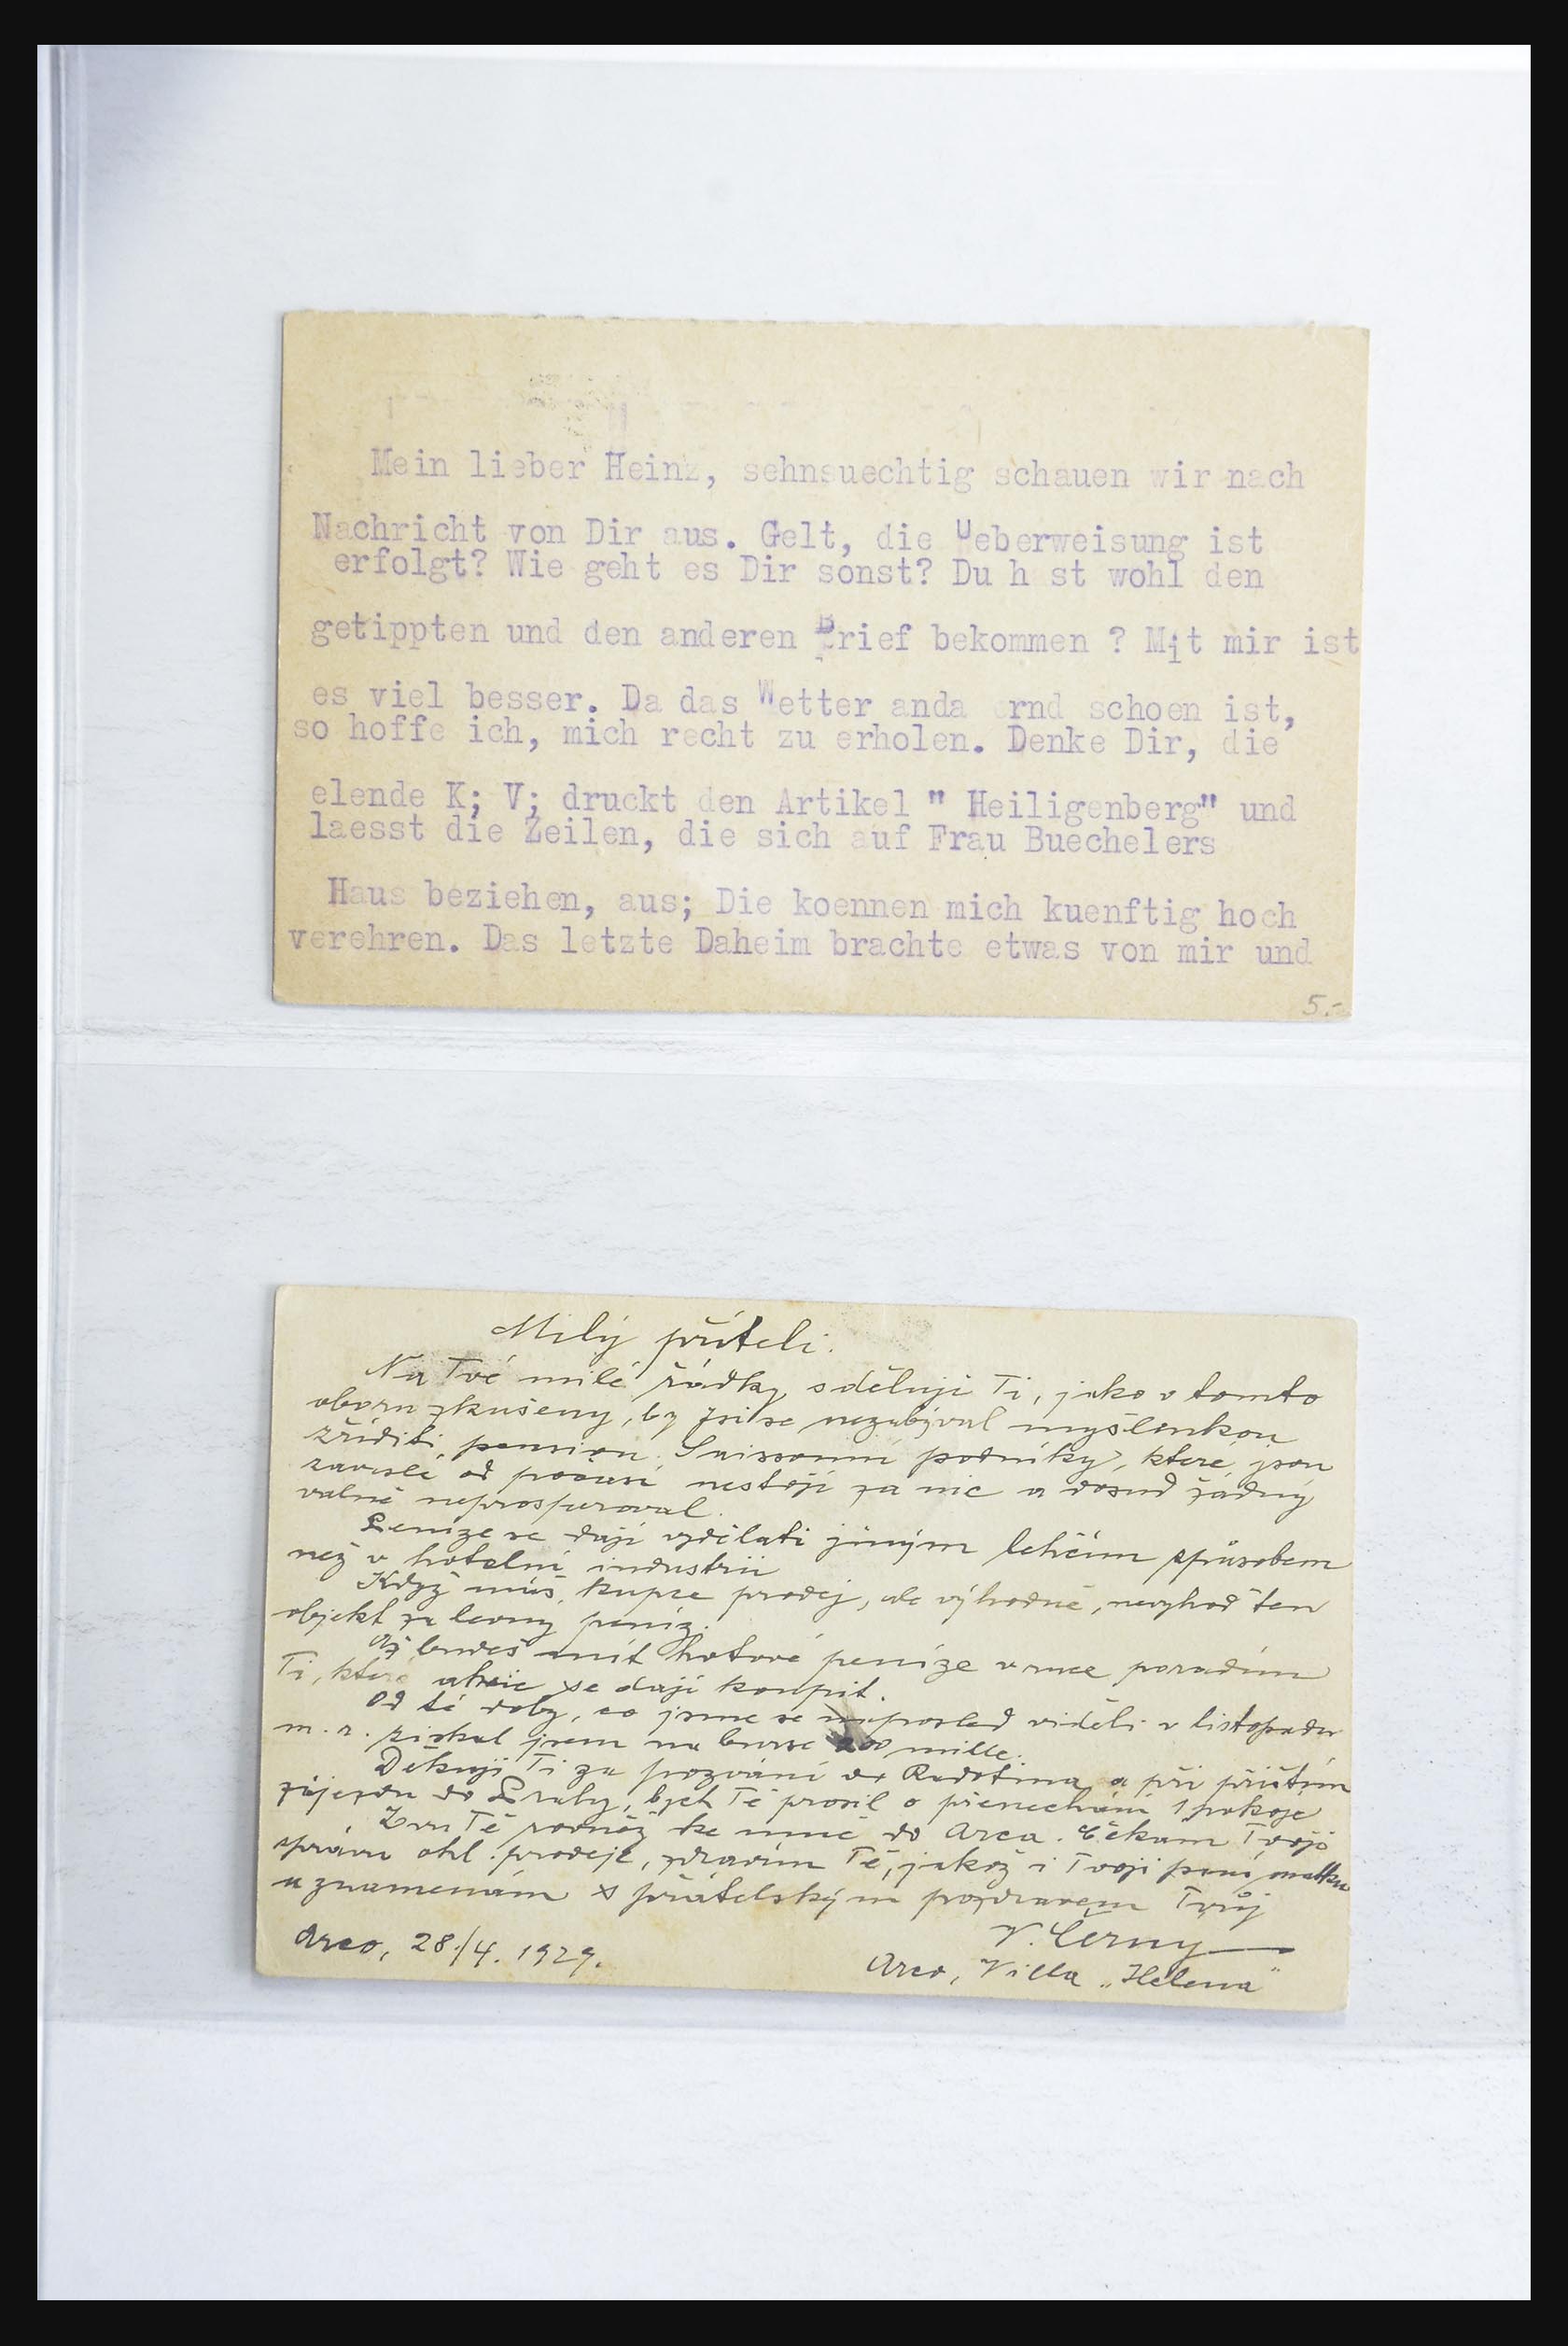 Mein lieber Heinz, sehnsuechtig schauen wir nach
Nachricht von Dir aus. Gelt, die Ueberweisung ist
erfolgt? Wie geht es Dir sonst? Du h st wohl den
getippten und den anderen Brief bekommen ? Mit mir ist
es viel besser. Da das Wetter anda ernd schoen ist,
so hoffe ich, mich recht zu erholen. Denke Dir, die
elende K; V; druckt den Artikel " Heiligenberg" und
laesst die Zeilen, die sich auf Frau Buechelers
Haus beziehen, aus; Die koennen mich kuenftig hoch
verehren. Das letzte Daheim brachte etwas von mir und
5.-
Milý příteli.
Na Tvé milé řádky sděluji Ti, jako v tomto
oboru zkušený, by jsi se nezabýval myšlenkou
zříditi pension. Saisonní podniky, které jsou
závislé od počasí nestojí za nic a dosud žádný
valně neprosperoval.
Peníze se dají vydělati jiným lehčím způsobem
než v hotelní industrii
Když máš kupce prodej, ale výhodně, nevyhoď ten
objekt za levný peníz.
Až budeš mít hotové peníze v ruce poradím
Ti, které akcie se dají koupit.
Od té doby, co jsme se naposled viděli v listopadu
m. r. získal jsem na burse 200 mille.
Děkuji Ti za pozvání do Radotína a při příštím
zájezdu do Prahy, bych Tě prosil o přenechání 1 pokoje
Zvu Tě rovněž ke mně do Arca. Čekám Tvojí
zprávu ohl. prodeje, zdravím Tě, jakož i Tvoji paní matku
a znamenám s přátelským pozdravem Tvůj
V. Černý
Arco, 28./4. 1929.
Arco, Villa „Helena"